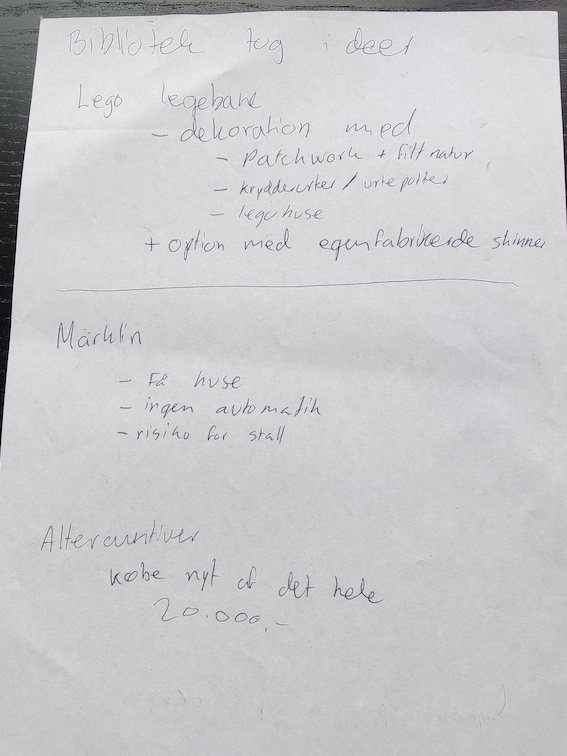 Bibliotek tog ideer
Lego legebane
- dekoration med
- Patchwork + filt natur
- krydderurter / urtepotter
- lego huse
+ option med egenfabrikerede skinner
Märklin
- Få huse
- ingen automatik
- risiko for stall
Alternativer
købe nyt af det hele
20.000,-